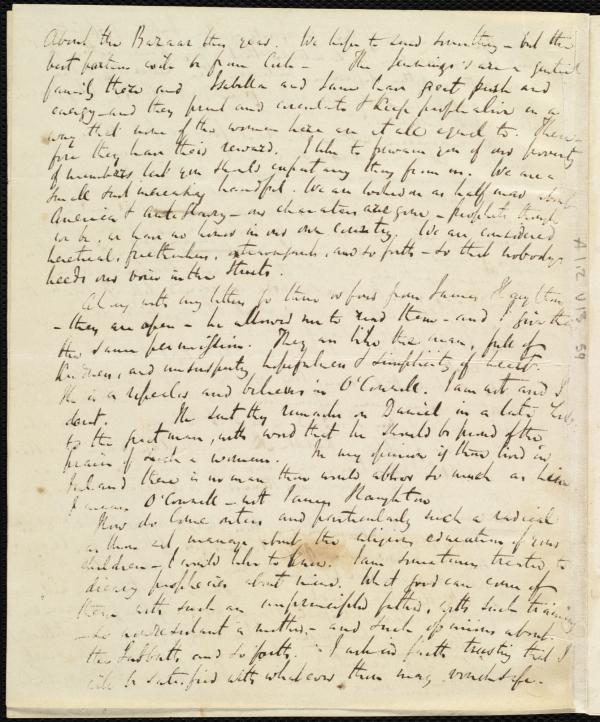 About the Bazaar this year. We hope to send something - but the
best portion will be from Cork - The Jennings's are a
family there and Isabella and Jane have great push and
energy - and they and circulate & keep people alive in a
way that none of the women here are at all equal to. There-
fore they have their reward. I like to forewarn you of our poverty
of numbers lest you should expect any thing from us. We are a
small but handful. We are looked on as half mad about
America & antislavery - our characters are gone - prophets though
we be, we have no honor in our own country. We are considered
heretical, freethinkers, and so forth - so that nobody
heeds our voice in the Streets.
Along with my letters go three or four from James Haughton
- they are open - he allowed me to read them - and I give thee
the same permission. They are like the man, full of
kindness, and unsuspecting hopefulness & simplicity of heart.
He is a repealer and believes in O'Connell. I am not and I
dont. He sent thy remarks on Daniel in a late
to the great man, with word that he should be proud of the
praise of such a woman. In my opinion if thou lived in
Ireland there is no man thou would abhor so much as him
I mean O'Connell - not James Haughton
How do come outers and particularly such a radical
as thou art manage about the religious education of your
children - I would like to know. I am sometimes treated to
dreary prophecies about mine. What good can come of
them with such an unprincipled father, with such training
- so a mother - and such opinions about
the Sabbath and so forth. I in faith trusting that I
will be satisfied with whatever they may vouchsafe.